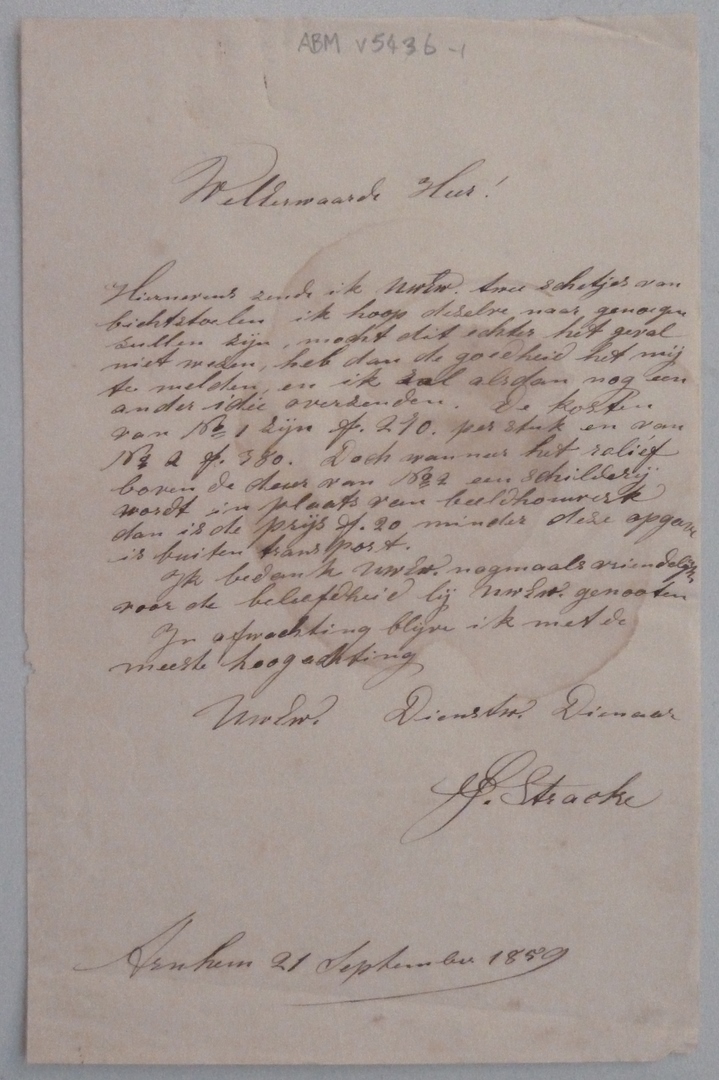 ABM v5436-1
WelEerwaarde Heer!
Hiernevens zende ik UwEw. twee schetsjes van
biechtstoelen, ik hoop dezelve naar genoegen
zullen zijn, mocht dit echter het geval
niet wezen, heb dan de goedheid het mij
te melden, en ik zal alsdan nog een
ander idée overzenden. De kosten
van No 1 zijn f. 290. per stuk en van
No 2 f. 380. Doch wanneer het relief
boven de deur van No 2 een schilderij
wordt in plaats van beeldhouwerk
dan is de prijs f. 20 minder deze opgave
is buiten transport.
Ik bedank UwEw. nogmaals vriendelijk
voor de beleefdheid bij UwEw. genooten
In afwachting blijve ik met de
meeste hoogachting
UwEw. Dienstw. Dienaar
Stracke
Arnhem 21 September 1859